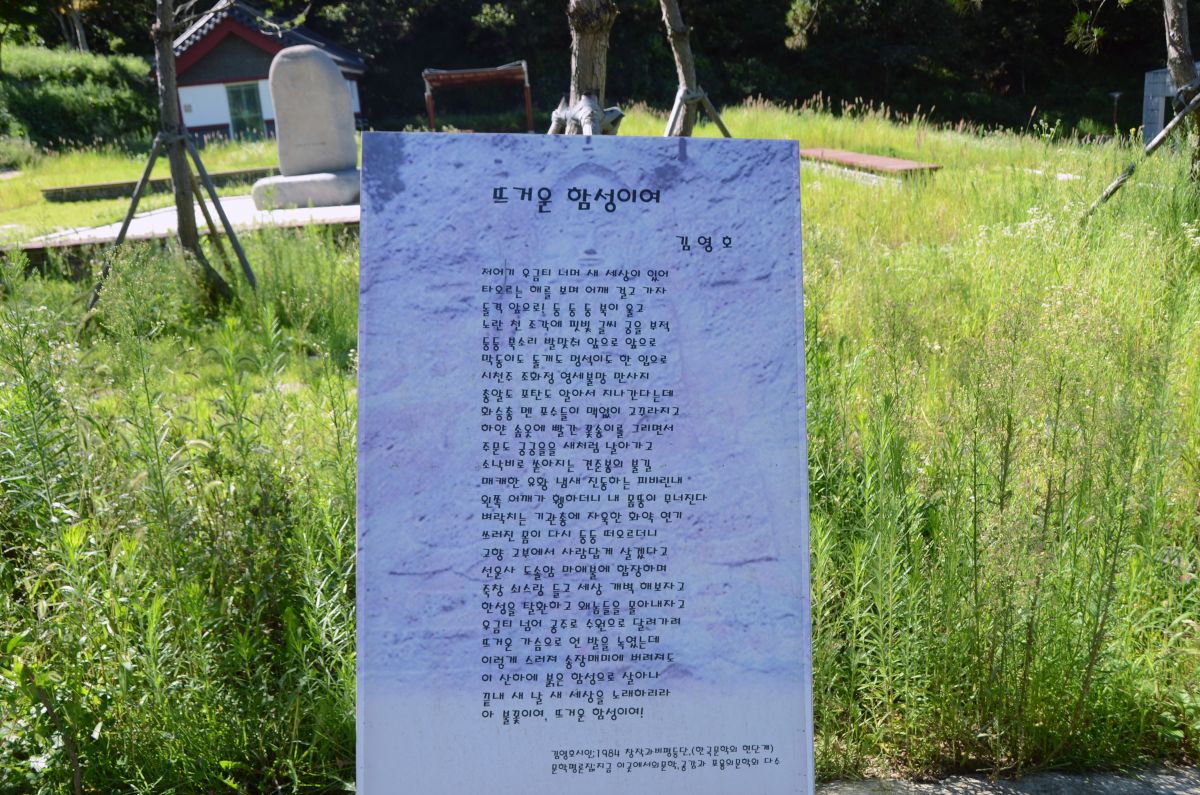 뜨거운 함성이여
김영호
저어기 우금티 너머 새 세상이 있어
타오르는 해를 보며 어깨 걸고 가자
돌격 앞으로! 둥 둥 둥 북이 울고
노란 천 조각에 핏빛 글씨 궁을 부적
둥둥 북소리 발맞춰 앞으로 앞으로
막동이도 돌개도 멍석이도 한 입으로
시천주 조화정 영세불망 만사지
총알도 포탄도 알아서 지나간다는데
화승총 멘 포수들이 맥없이 고꾸라지고
하얀 솜옷에 빨간 꽃송이를 그리면서
주문도 궁궁을을 새처럼 날아가고
소낙비로 쏟아지는 견준봉의 불길
매캐한 유황 냄새 진동하는 피바린내
왼쪽 어깨가 횅하더니 내 몸뚱이 무너진다
벼락치는 기관총에 자욱한 화약 연기
쓰러진 몸이 다시 둥둥 떠오르더니
고향 고부에서 사람답게 살겠다고
선운사 도솔암 마애불에 합장하며
죽창 쇠스랑 들고 세상 개벽 해보자고
한성을 탈환하고 왜놈들을 몰아내자고
우금티 넘어 공주로 수원으로 달려가려
뜨거운 가슴으로 언 발을 녹였는데
이렇게 스러져 송장매미에 버려져도
이 산하에 붉은 함성으로 살아나
끝내 새 날 새 세상을 노래하리라
아 불꽃이여, 뜨거운 함성이여!
김영호시인;1984 창작과비평등단,(한국문학의 현단계)
문학평론집;지금 이곳에서의문학,공감과 포용의문학외 다수